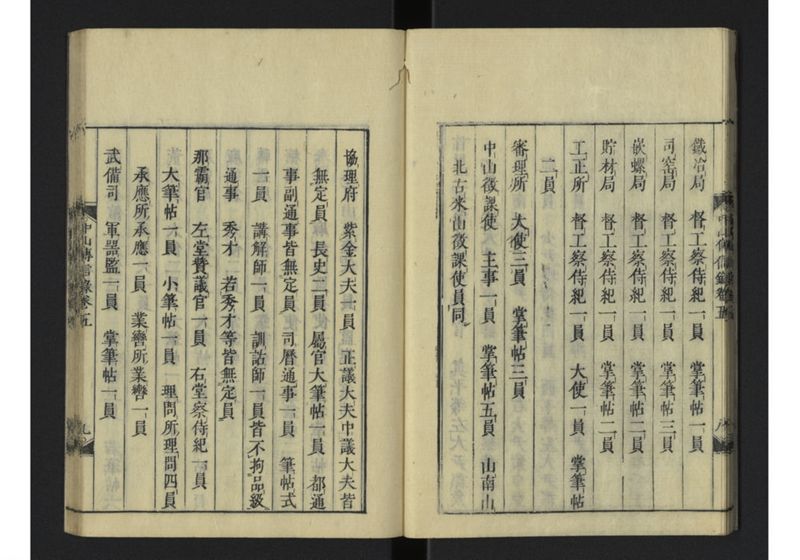 鐵冶局　督工察侍紀一員　掌筆帖一員
司窑局　督工察侍紀一員　掌筆帖三員
嵌螺局　督工察侍紀一員　掌筆帖二員
貯材局　督工察侍紀一員　掌筆帖二員
工正所　督工察侍紀一員　大使一員　掌筆帖
二員
審理所　大使三員　掌筆帖三員
中山徵課使　主事一員　掌筆帖五員　山南山
北古米山徵課使員同
協理府　紫金大夫一員　正議大夫中議大夫皆
無定員　長史二員　屬官大筆帖一員　都通
事副通事皆無定員　司曆通事一員　筆帖式
一員　講解師一員　訓詁師一員皆不拘品級
通事　秀才　若秀才等皆無定員
那霸官　左堂贊議官一員　右堂察侍紀一員
大筆帖一員　小筆帖一員　理問所理問四員
承應所承應一員　業嚮所業嚮一員
武備司　軍器監一員　掌筆帖一員
中山傳信錄卷五
九